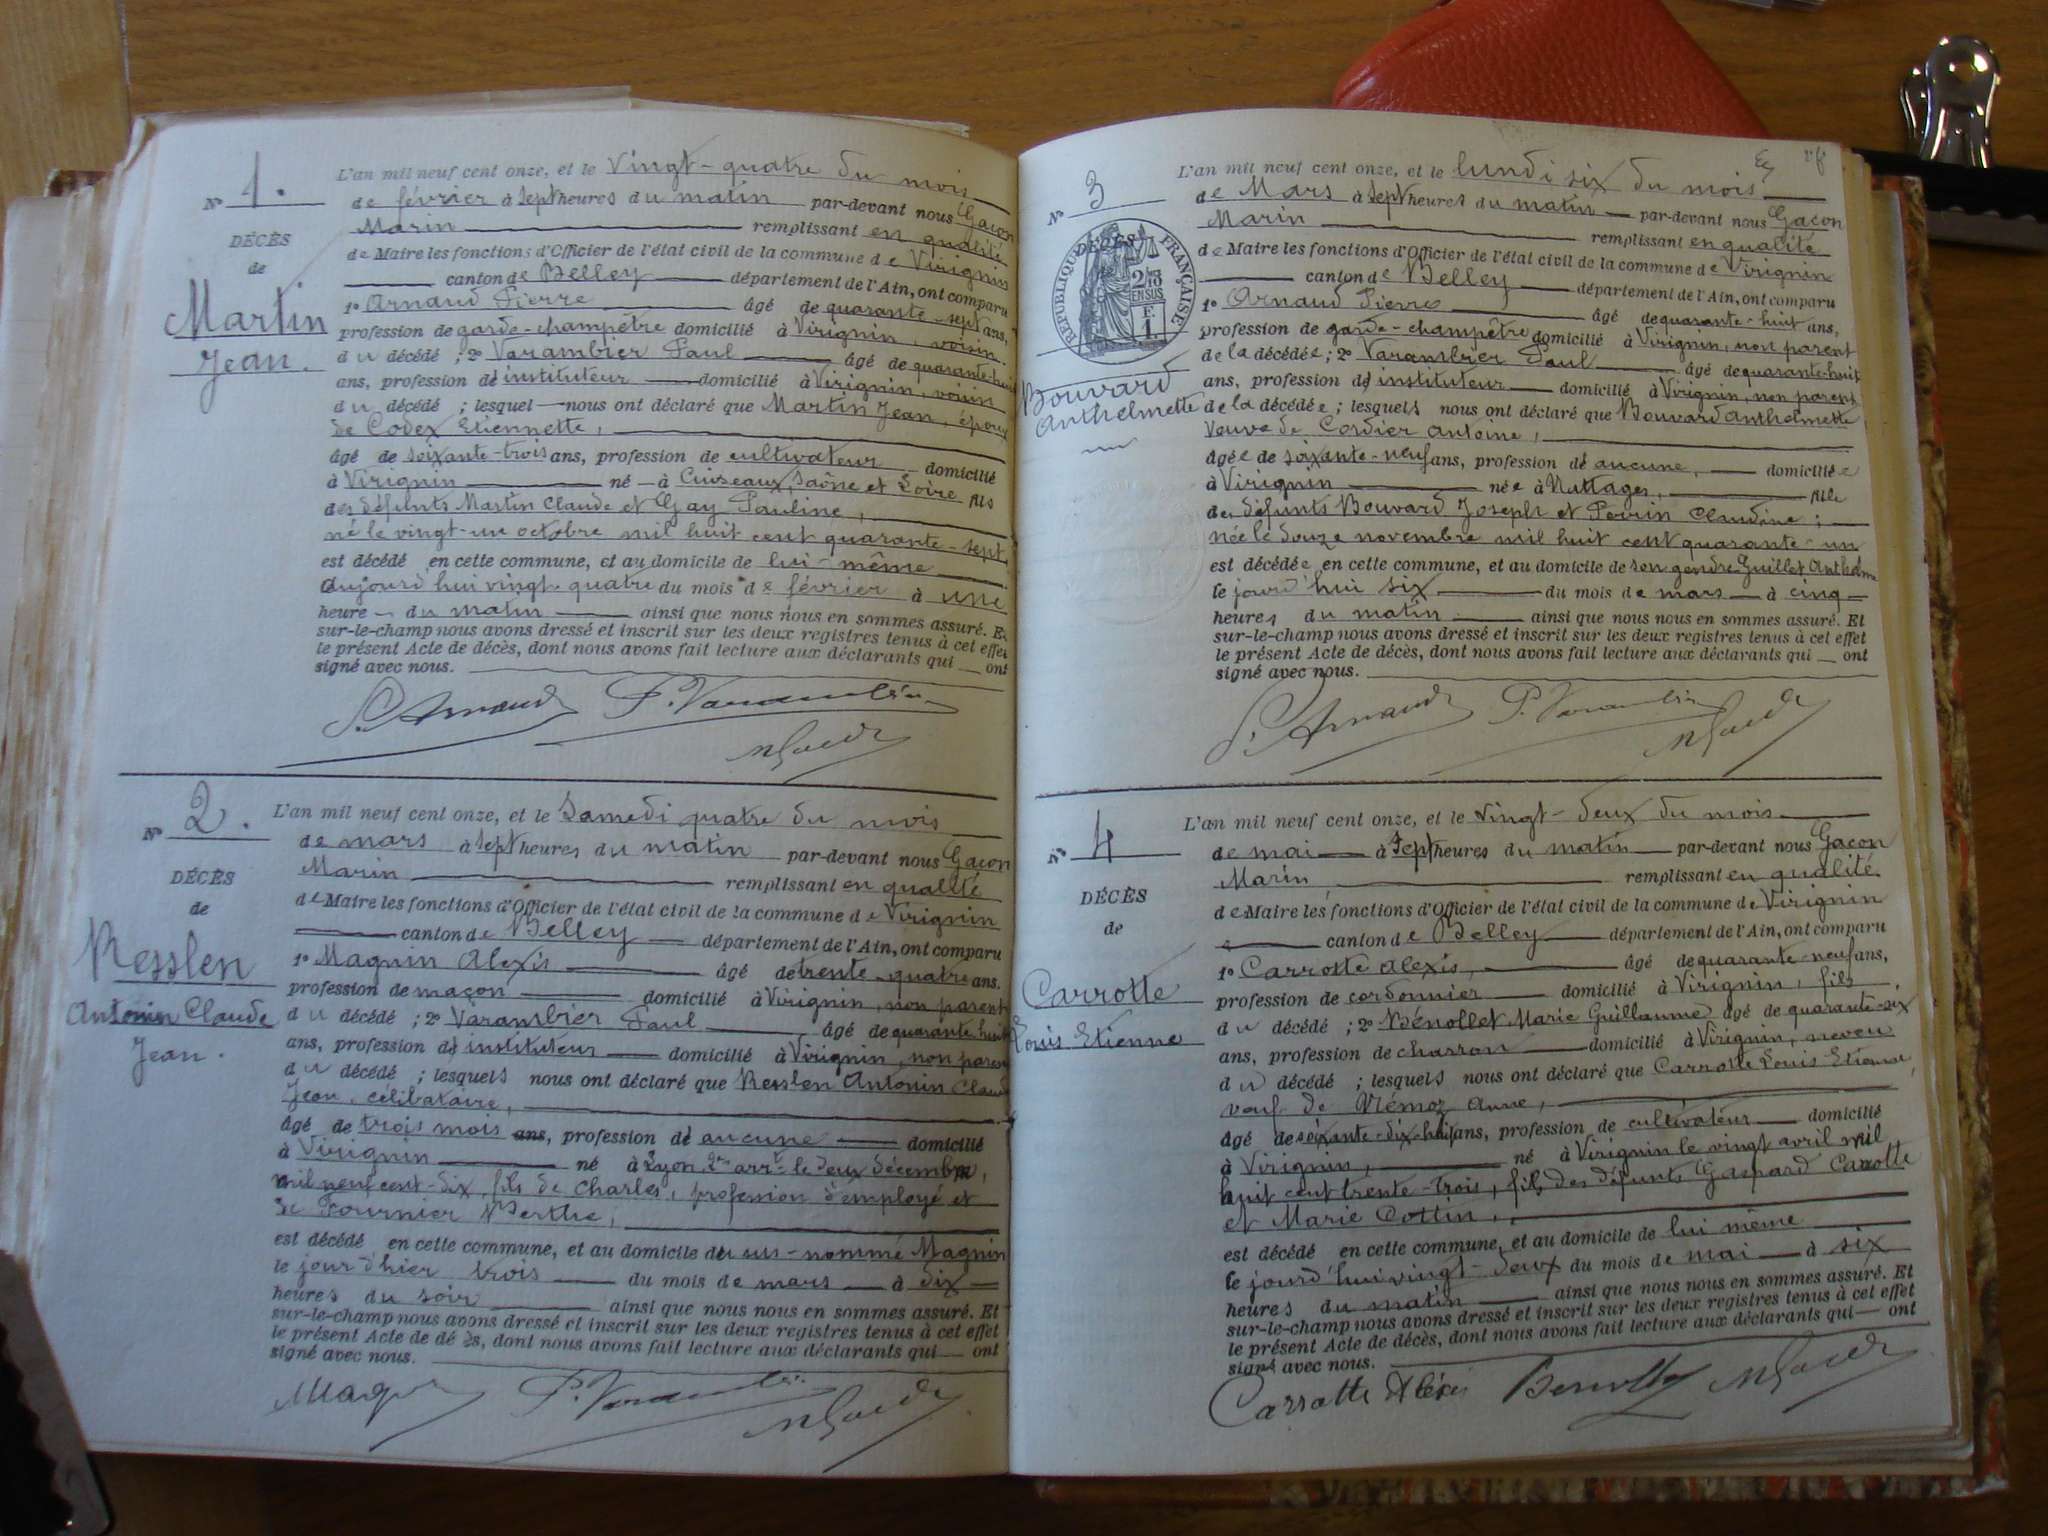 N° 1.
DÉCÈS
de
Martin
Jean.
L'an mil neuf cent onze, et le Vingt-quatre du mois
de février à sept heures du matin par-devant nous Gacon
Marin remplissant en qualité
de Maire les fonctions d'Officier de l'état civil de la commune de Virignin
canton de Belley département de l'Ain, ont comparu
1° Arnaud Pierre âgé de quarante-sept ans,
profession de garde-champêtre domicilié à Virignin, voisin
du décédé ; 2° Varambier Paul âgé de quarante-huit
ans, profession d' instituteur domicilié à Virignin, voisin
du décédé ; lesquel nous ont déclaré que Martin Jean, époux
de Codex Etiennette,
âgé de soixante-trois ans, profession de cultivateur domicilié
à Virignin né à Cuiseaux, Saône et Loire fils
des défunts Martin Claude et Gay Pauline,
né le vingt-un octobre mil huit cent quarante-sept
est décédé en cette commune, et au domicile de lui-même
aujourd'hui vingt-quatre du mois de février à une
heure du matin ainsi que nous nous en sommes assuré. Et
sur-le-champ nous avons dressé et inscrit sur les deux registres tenus à cet effet
le présent Acte de décès, dont nous avons fait lecture aux déclarants qui ont
signé avec nous.
P. Arnaud P. Varambier
MGacon
N° 2.
DÉCÈS
de
Resslen
Antonin Claude
Jean.
L'an mil neuf cent onze, et le Samedi quatre du mois
de mars à sept heures du matin par-devant nous Gacon
Marin remplissant en qualité
de Maire les fonctions d'Officier de l'état civil de la commune de Virignin
canton de Belley département de l'Ain, ont comparu
1° Magnin Alexis âgé de trente-quatre ans.
profession de maçon domicilié à Virignin, non parent
du décédé ; 2° Varambier Paul âgé de quarante-huit
ans, profession d' instituteur domicilié à Virignin, non parent
du décédé ; lesquels nous ont déclaré que Resslen Antonin Claude
Jean, célibataire,
âgé de trois mois ans, profession d' aucune domicilié
à Virignin né à Lyon, 2me arrt le deux décembre,
mil neuf cent-dix, fils de Charles, profession d'employé et
de Fournier Berthe,
est décédé en cette commune, et au domicile du sus-nommé Magnin
le jour d'hier trois du mois de mars à dix
heures du soir ainsi que nous nous en sommes assuré. Et
sur-le-champ nous avons dressé et inscrit sur les deux registres tenus à cet effet
le présent Acte de dé ès, dont nous avons fait lecture aux déclarants qui ont
signé avec nous.
Magnin P. Varambier
MGacon
N° 3
RÉPUBLIQUE FRANÇAISE
DÉCÈS
2/10
EN SUS
F.
1
Bouvard
Anthelmette
L'an mil neuf cent onze, et le lundi six du mois
de Mars à sept heures du matin par-devant nous Gacon
Marin remplissant en qualité
de Maire les fonctions d'Officier de l'état civil de la commune de Virignin
canton de Belley département de l'Ain, ont comparu
1° Arnaud Pierre âgé de quarante-huit ans,
profession de garde-champêtre domicilié à Virignin, non parent
de la décédée ; 2° Varambier Paul âgé de quarante-huit
ans, profession d' instituteur domicilié à Virignin, non parent
de la décédée ; lesquels nous ont déclaré que Bouvard Anthelmette
veuve de Cordier Antoine,
âgée de soixante-neuf ans, profession d' aucune, domiciliée
à Virignin née à Nattages, fille
des défunts Bouvard Joseph et Perrin Claudine ;
née le douze novembre mil huit cent quarante-un
est décédée en cette commune, et au domicile de son gendre Guillet Anthelme
le jourd'hui six du mois de mars à cinq
heures du matin ainsi que nous nous en sommes assuré. Et
sur-le-champ nous avons dressé et inscrit sur les deux registres tenus à cet effet
le présent Acte de décès, dont nous avons fait lecture aux déclarants qui ont
signé avec nous.
P. Arnaud P. Varambier
MGacon
N° 4
DÉCÈS
de
Carrotte
Louis Etienne
L'an mil neuf cent onze, et le vingt-deux du mois
de mai à sept heures du matin par-devant nous Gacon
Marin, remplissant en qualité
de Maire les fonctions d'Officier de l'état civil de la commune de Virignin
canton de Belley département de l'Ain, ont comparu
1° Carrotte Alexis, âgé de quarante-neuf ans,
profession de cordonnier domicilié à Virignin, fils
du décédé ; 2° Bénollet Marie Guillaume âgé de quarante-six
ans, profession de charron domicilié à Virignin, neveu
du décédé ; lesquels nous ont déclaré que Carrotte Louis Etienne,
veuf de Mémoz Anne,
âgé de soixante-dix-huit ans, profession de cultivateur domicilié
à Virignin, né à Virignin le vingt avril mil
huit cent trente-trois, fils des défunts Gaspard Carrotte
et Marie Cottin,
est décédé en cette commune, et au domicile de lui même
le jourd'hui vingt-deux du mois de mai à six
heures du matin ainsi que nous nous en sommes assuré. Et
sur-le-champ nous avons dressé et inscrit sur les deux registres tenus à cet effet
le présent Acte de décès, dont nous avons fait lecture aux déclarants qui ont
signé avec nous.
Carrotte Aléxis Benollet MGacon